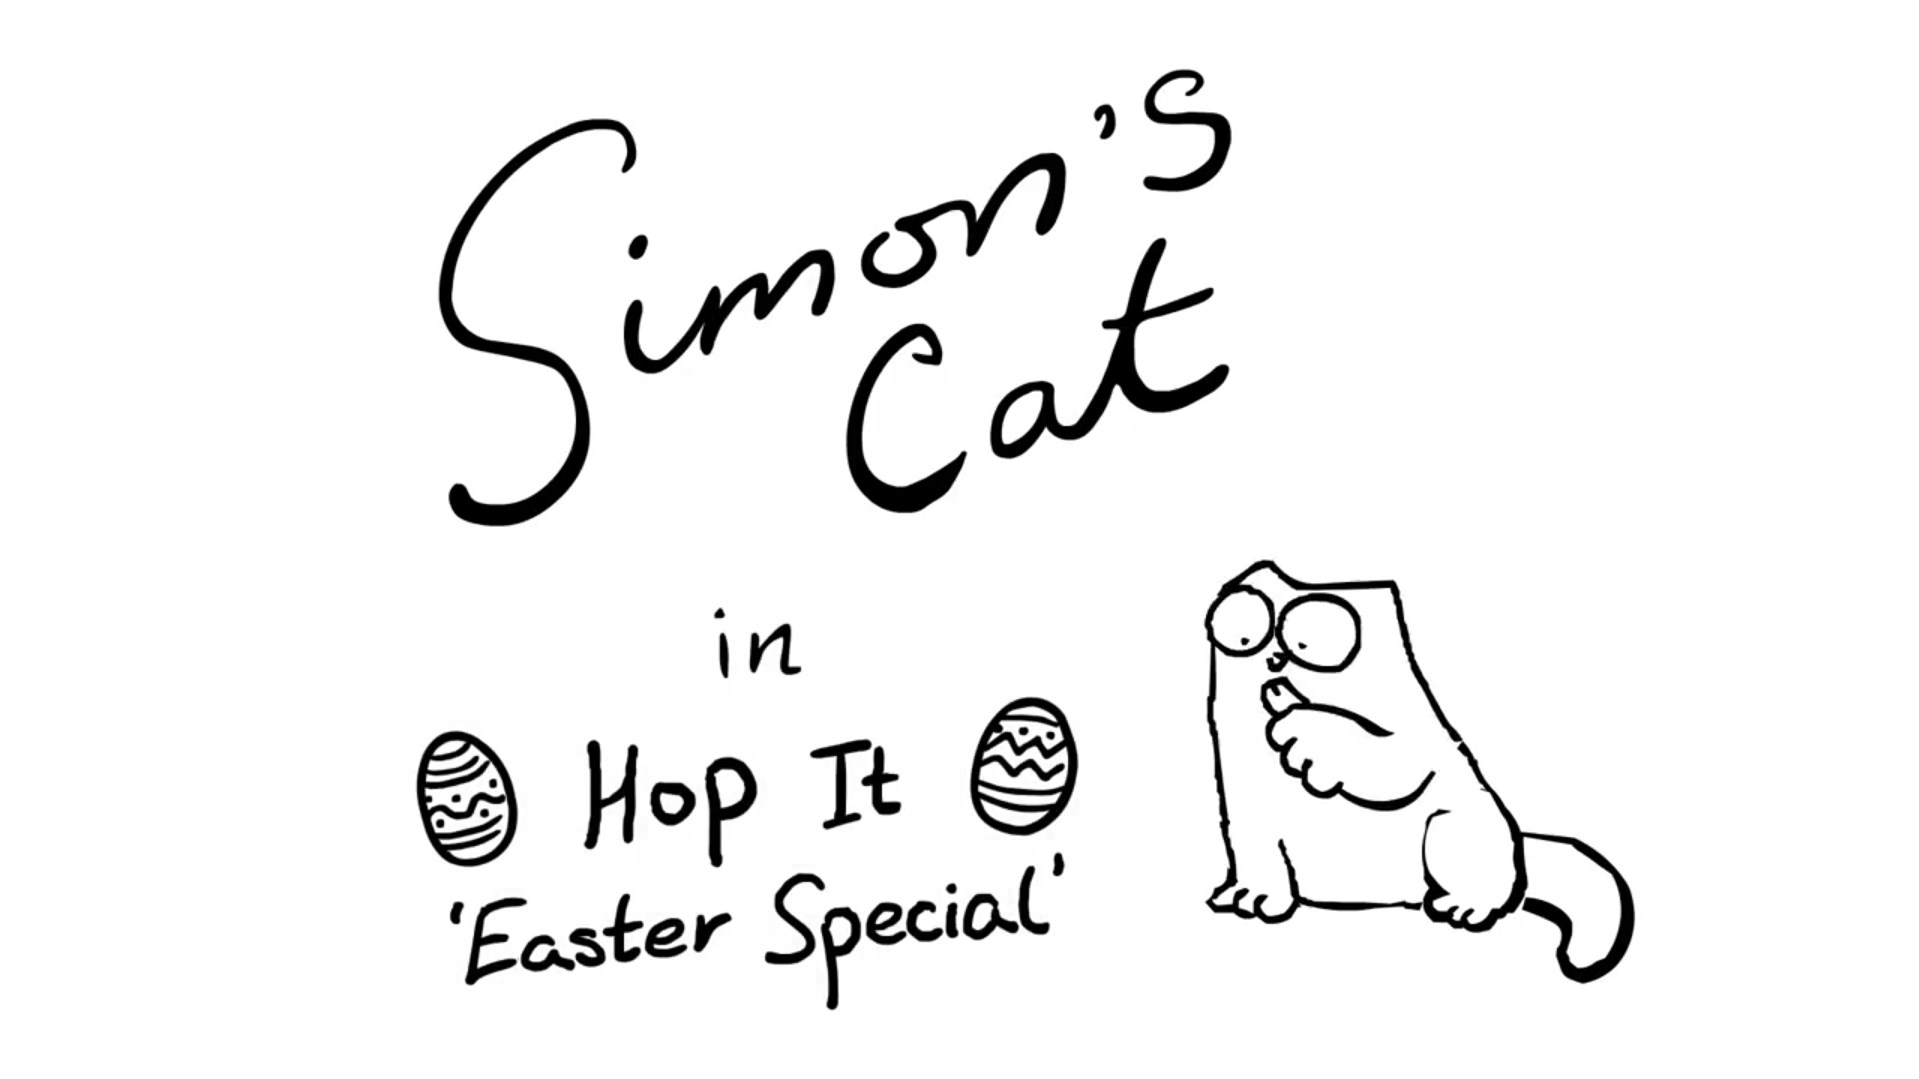 Simon's
Cat
in
Hop It
'Easter Special'